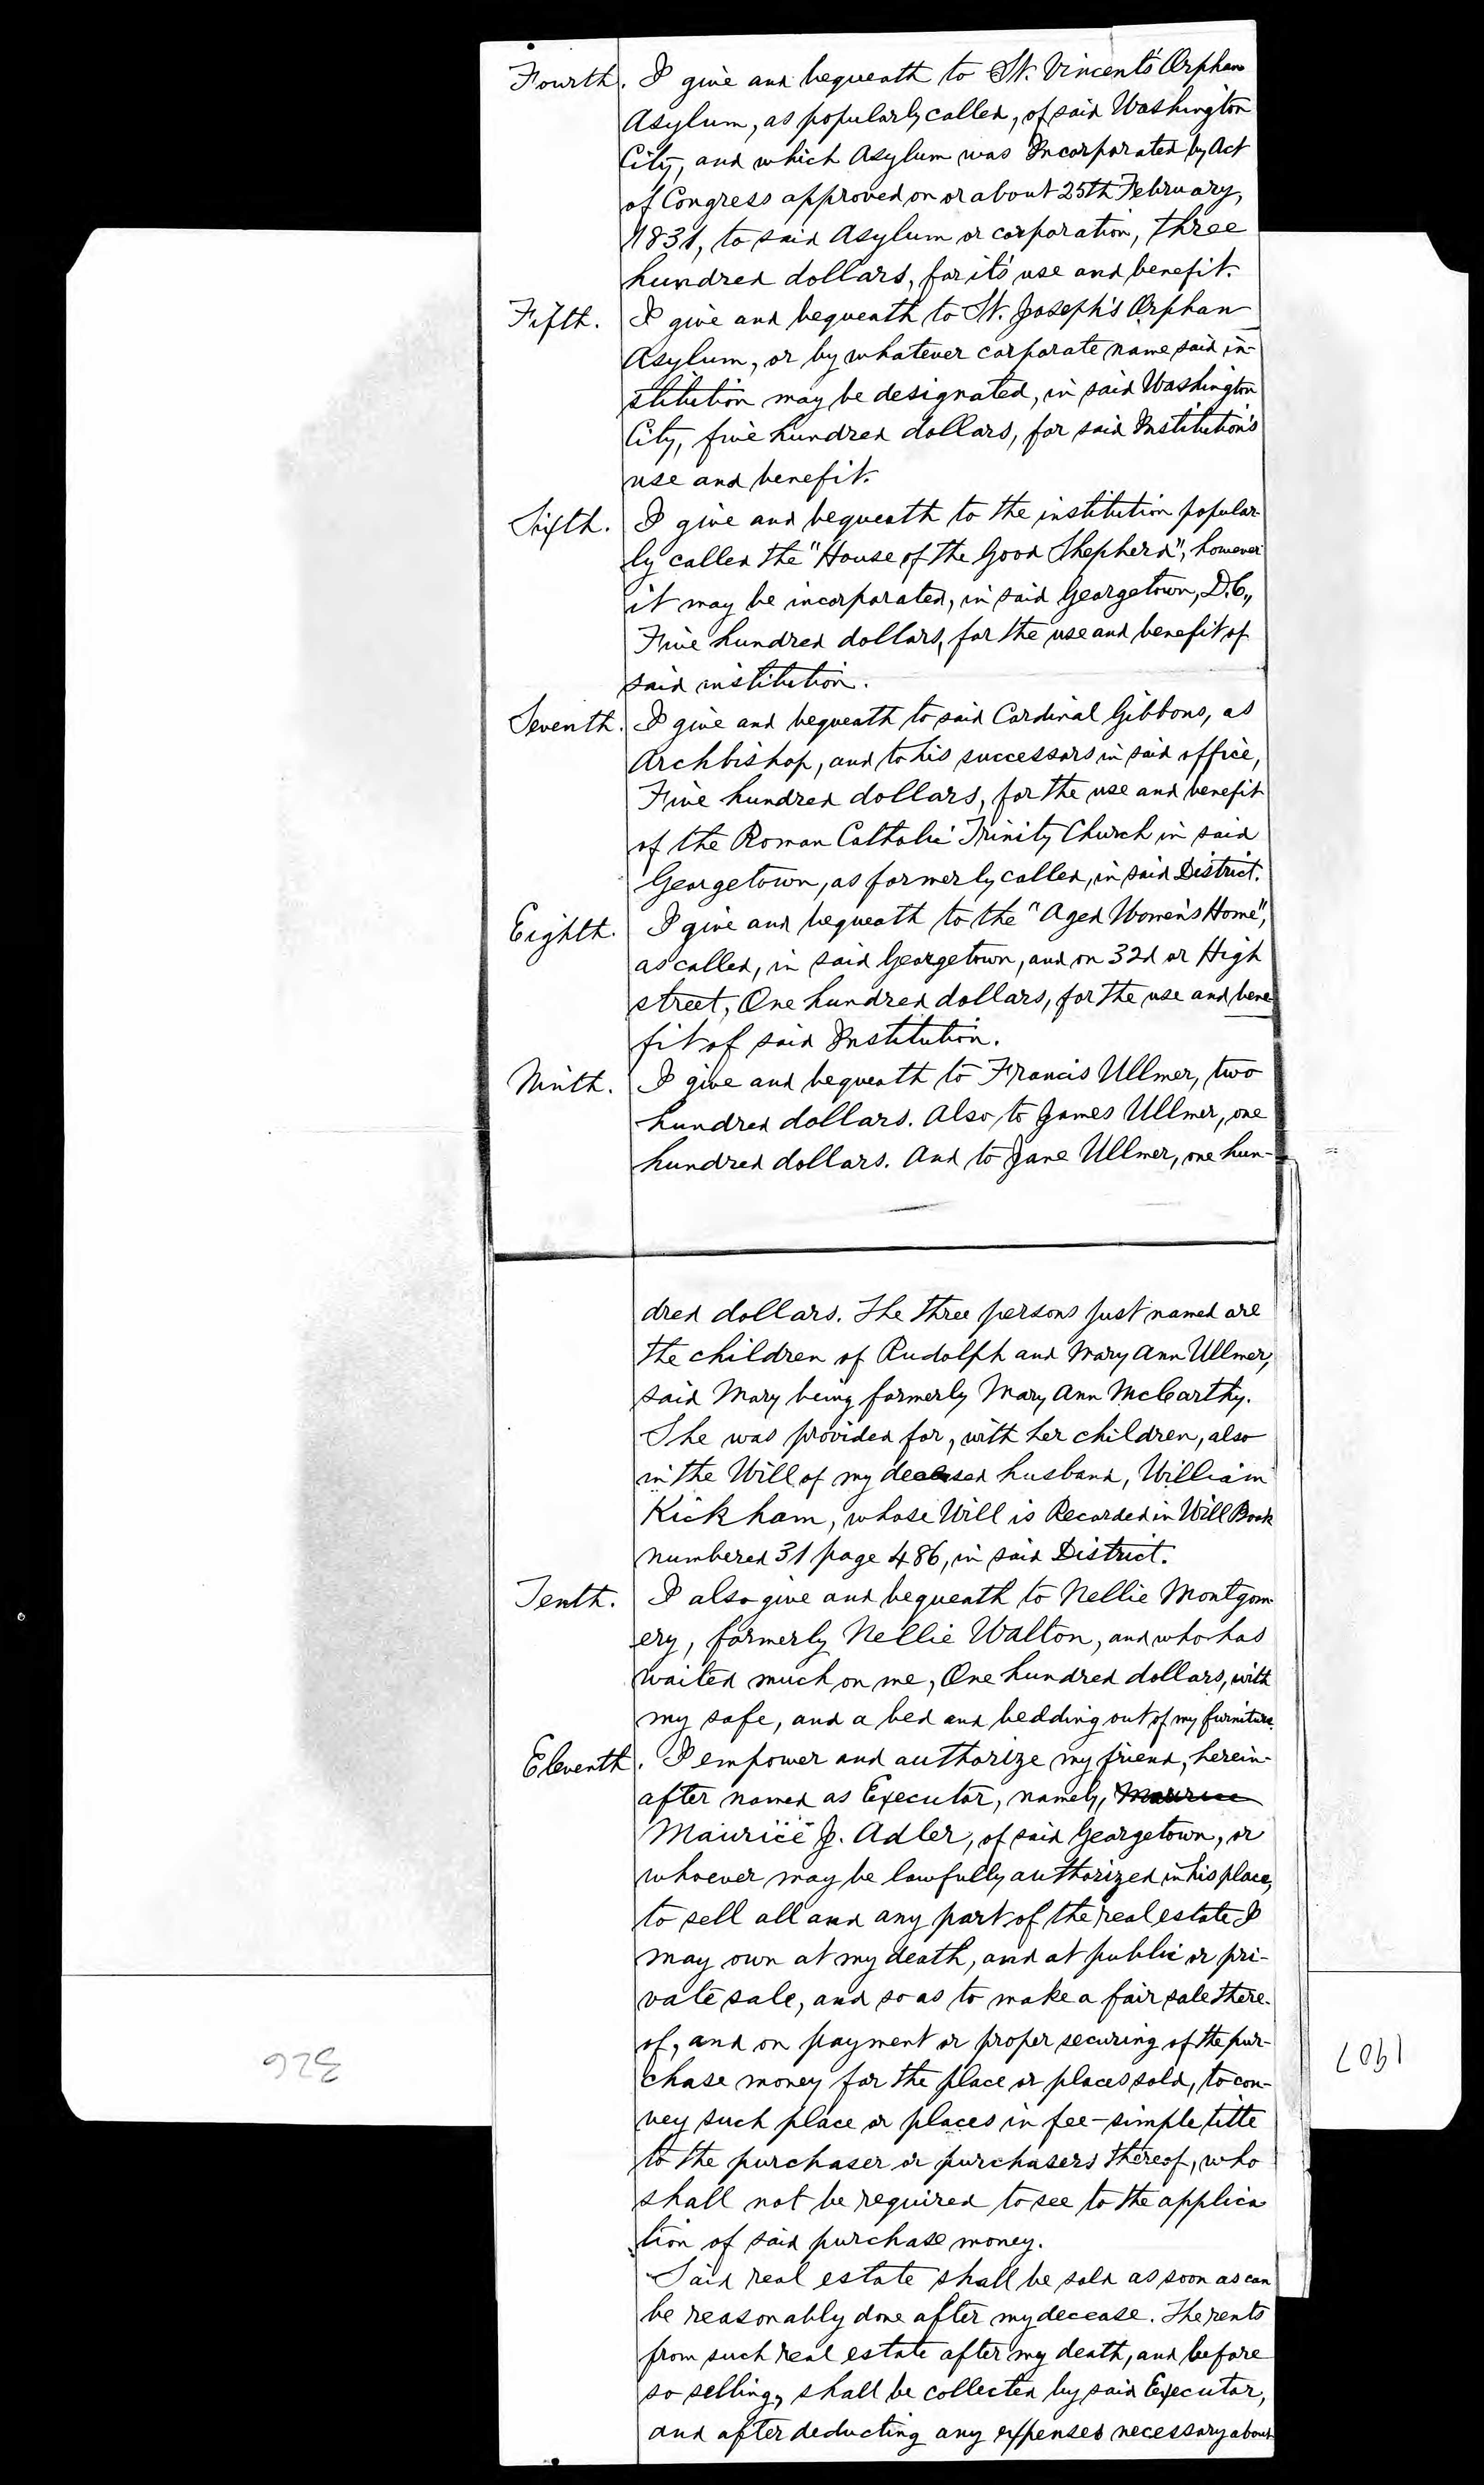 Fourth. I give and bequeath to St. Vincent's Orphan
Asylum, as popularly called, of said Washington
City, and which Asylum was Incorporated by Act
of Congress approved on or about 25th February,
1831, to said Asylum or corporation, three
hundred dollars, for it's use and benefit.
Fifth. I give and bequeath to St. Joseph's Orphan
Asylum, or by whatever corporate name said in-
stitution may be designated, in said Washington
City, five hundred dollars, for said Institution's
use and benefit.
Sixth. I give and bequeath to the institution popular-
ly called the "House of the Good Shepherd", however
it may be incorporated, in said Georgetown, D.C.,
Five hundred dollars, for the use and benefit of
said institution.
Seventh. I give and bequeath to said Cardinal Gibbons, as
Archbishop, and to his successors in said office,
Five hundred dollars, for the use and benefit
of the Roman Catholic Trinity Church in said
Georgetown, as formerly called, in said District.
Eighth. I give and bequeath to the "Aged Women's Home",
as called, in said Georgetown, and on 32d or High
street, One hundred dollars, for the use and bene
fit of said Institution.
Ninth. I give and bequeath to Francis Ullmer, two
hundred dollars. Also to James Ullmer, one
hundred dollars. And to Jane Ullmer, one hun-
dred dollars. The three persons just named are
the children of Rudolph and Mary Ann Ullmer,
said Mary being formerly Mary Ann McCarthy.
She was provided for, with her children, also
in the Will of my deceased husband, William
Kickham, whose Will is Recorded in Will Book
numbered 31 page 486, in said District.
Tenth. I also give and bequeath to Nellie Montgom
ery, formerly Nellie Walton, and who has
waited much on me, One hundred dollars, with
my safe, and a bed and bedding out of my furniture.
Eleventh. I empower and authorize my friend, herein-
after named as Executor, namely, Maurice
Maurice J. Adler, of said Georgetown, or
whoever may be lawfully authorized in his place,
to sell all and any part of the real estate I
may own at my death, and at public or pri-
vate sale, and so as to make a fair sale there-
of, and on payment or proper securing of the pur-
chase money for the place or places sold, to con-
vey such place or places in fee-simple title
to the purchaser or purchasers thereof, who
shall not be required to see to the applica
tion of said purchase money.
Said real estate shall be sold as soon as can
be reasonably done after my decease. The rents
from such real estate after my death, and before
so selling, shall be collected by said Executor,
and after deducting any expenses necessary about
326
1907